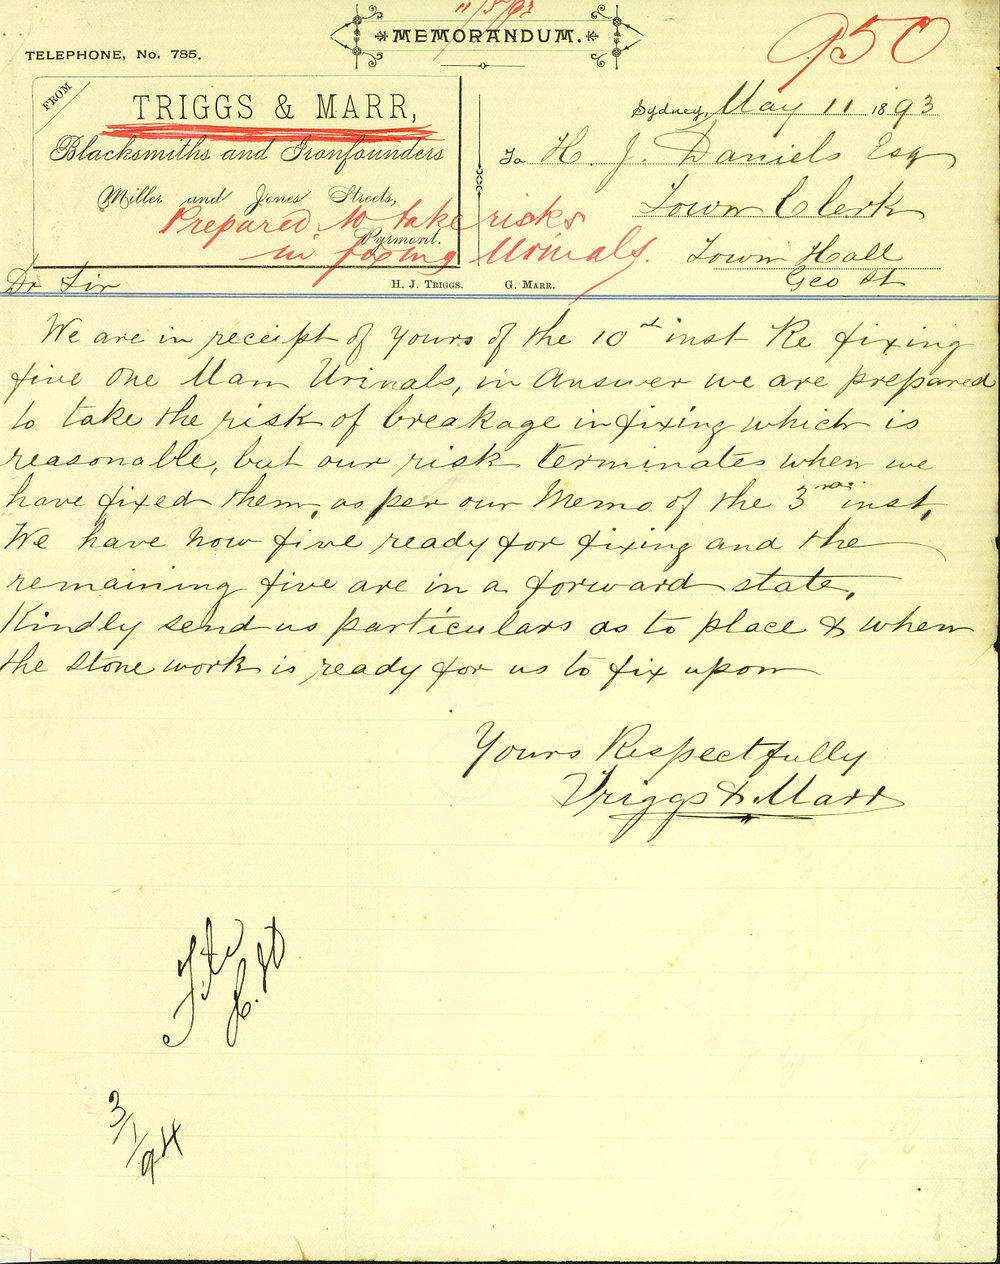 11/5/93
MEMORANDUM.
950
TELEPHONE, No. 785.
FROM
TRIGGS & MARR,
Blacksmiths and Ironfounders
Miller and Jones Streets,
Pyrmont.
Prepared to take risks
in fixing Urinals.
H. J. TRIGGS. G. MARR.
Sydney, May 11 1893
To H. J. Daniels Esq
Town Clerk
Town Hall
Geo St
Dr Sir
We are in receipt of yours of the 10th inst Re fixing
five One Man Urinals, in answer we are prepared
to take the risk of breakage in fixing which is
reasonable, but our risk terminates when we
have fixed them, as per our Memo of the 3rd inst,
We have now five ready for fixing and the
remaining five are in a forward state,
Kindly send us particulars as to place & when
the stone work is ready for us to fix upon
Yours Respectfully
Triggs & Marr
File
3/1/94